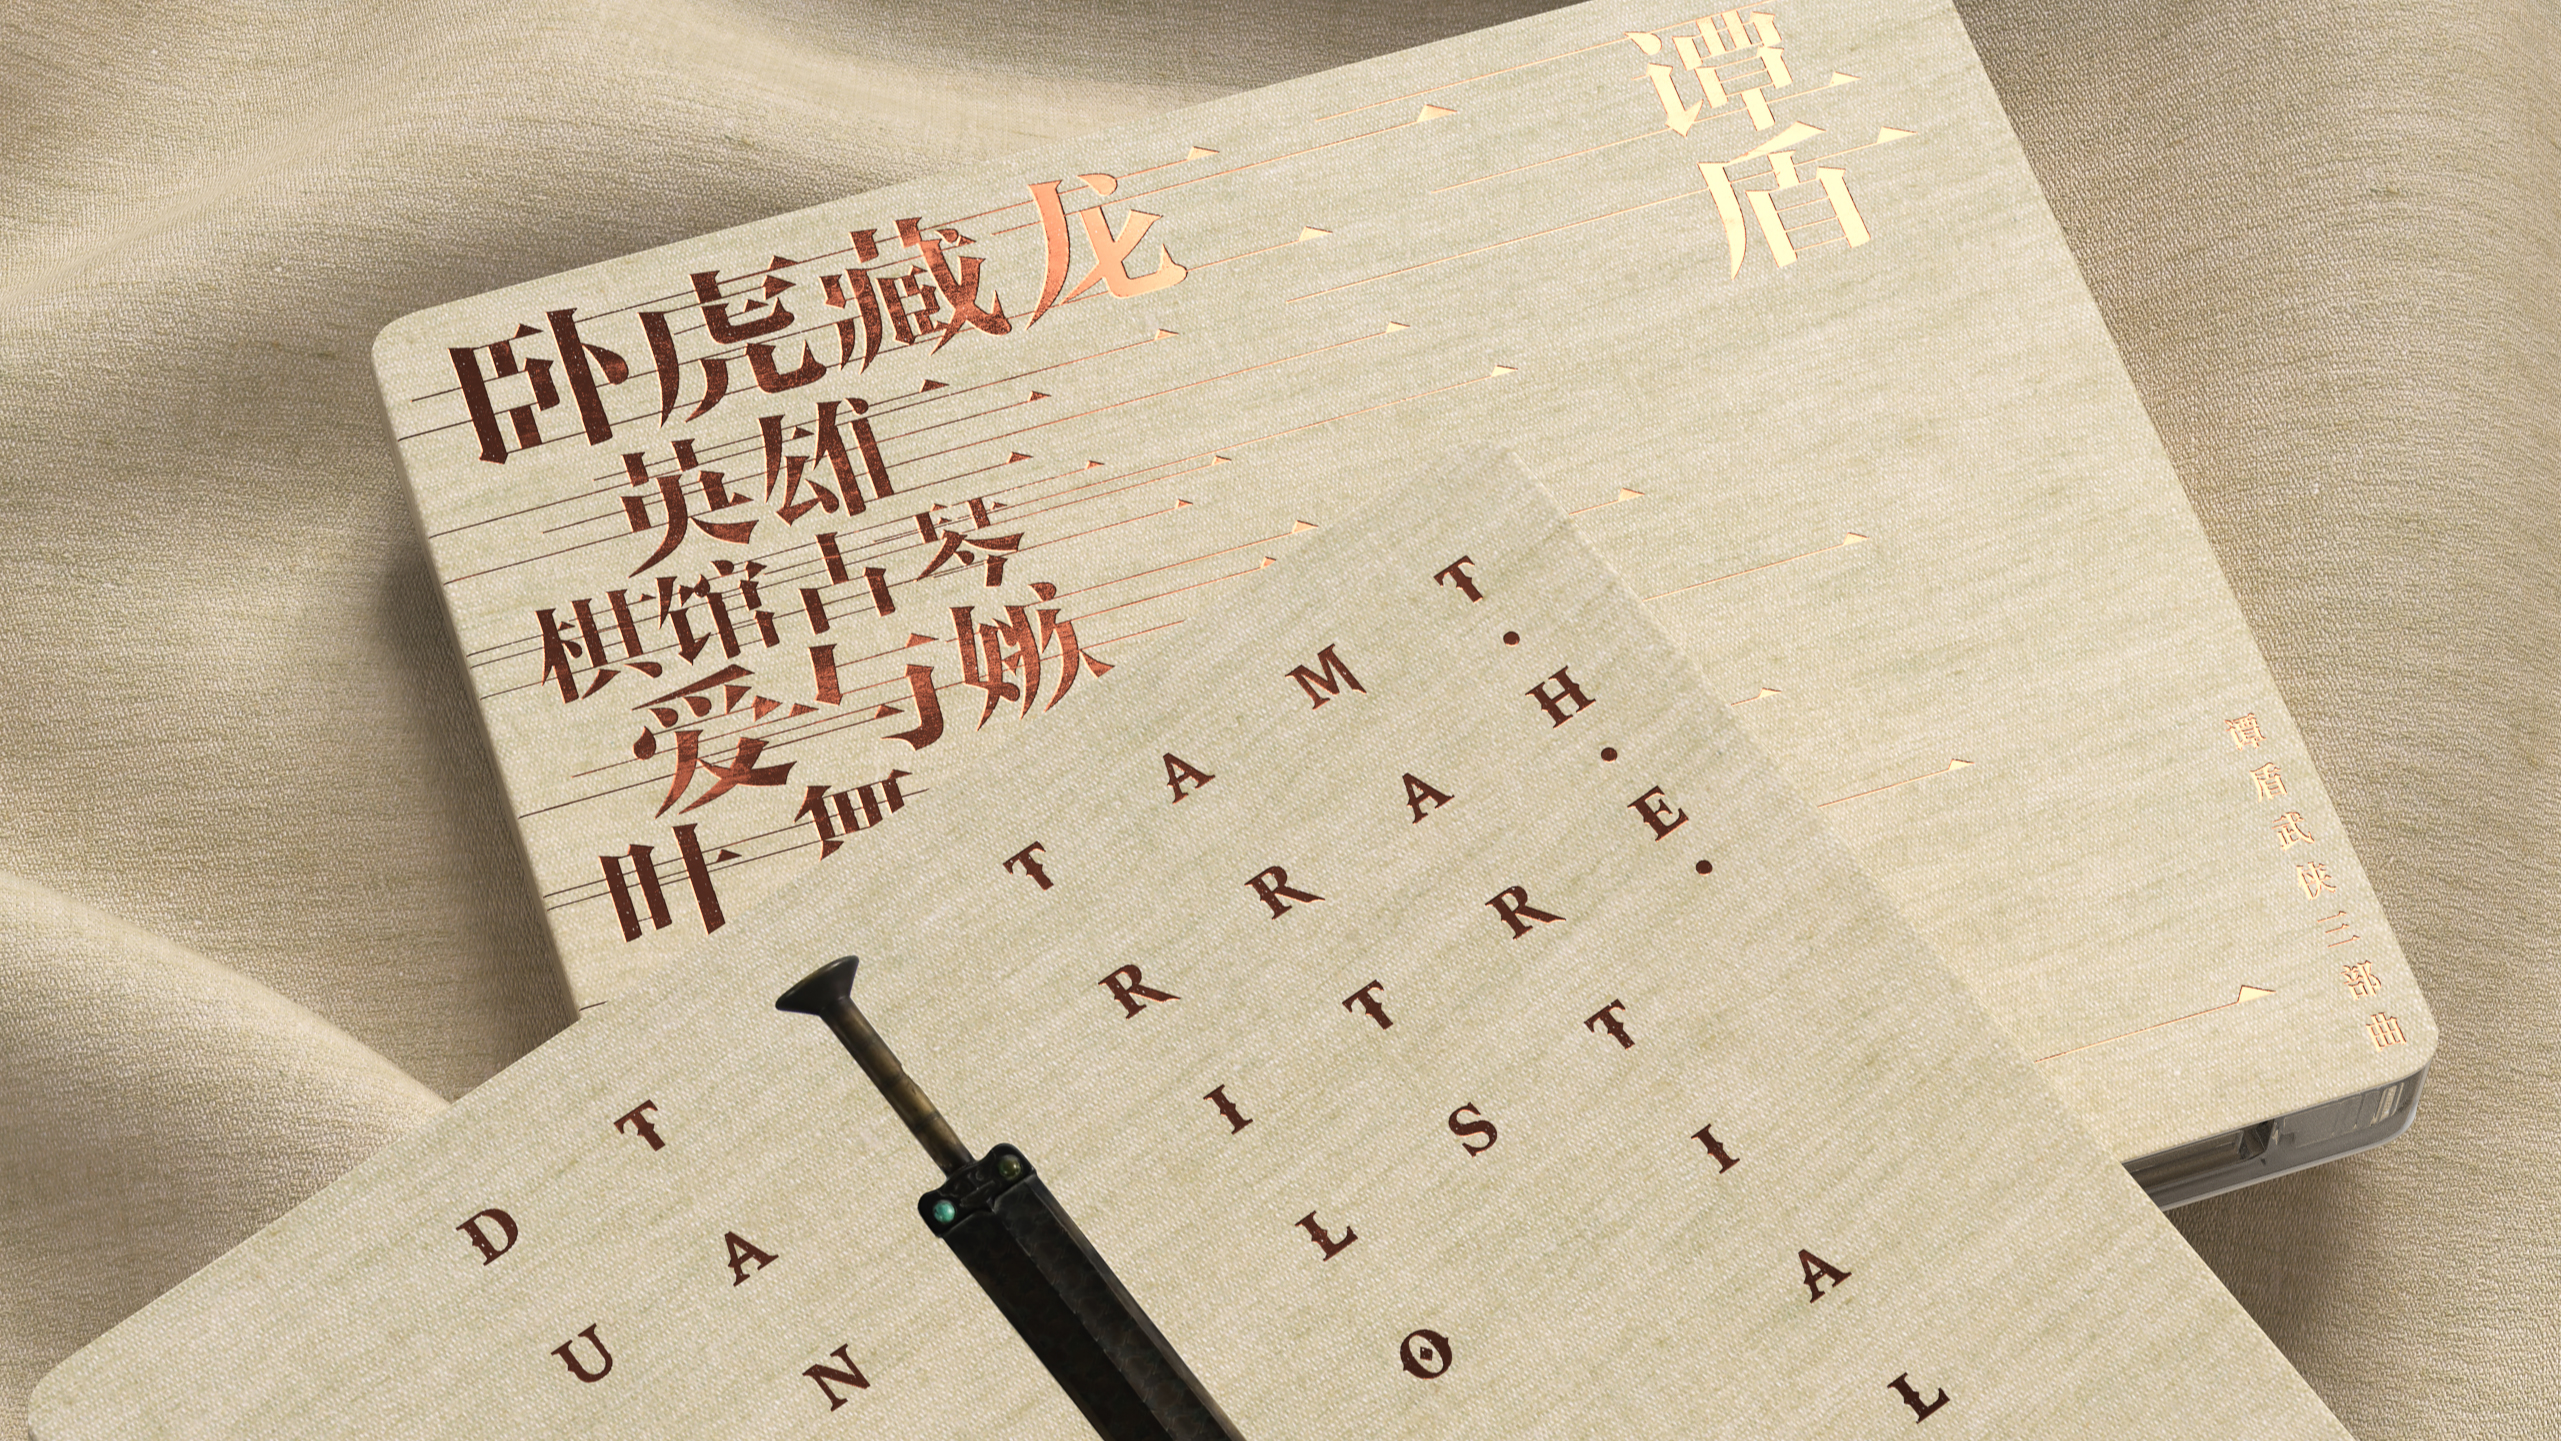 谭盾
卧虎藏龙
英雄
棋馆古琴
爱与嫉
叶
谭盾武侠三部曲
T.H.E.
MARTIAL
ARTS
TRILO
TAN
DU